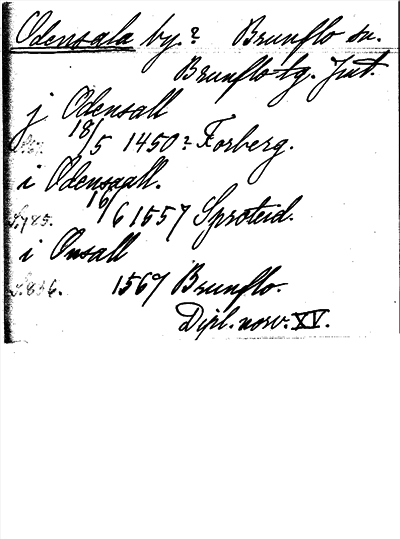 Odensala by? Brunflo sn.
Brunflo tg. Jmt.
j Odensall
18/5 1450? Forberg.
i Odensaall.
S. 785. 16/6 1557 Sproteid.
i Onsall
S. 836. 1567 Brunflo.
Dipl. norv. XV.